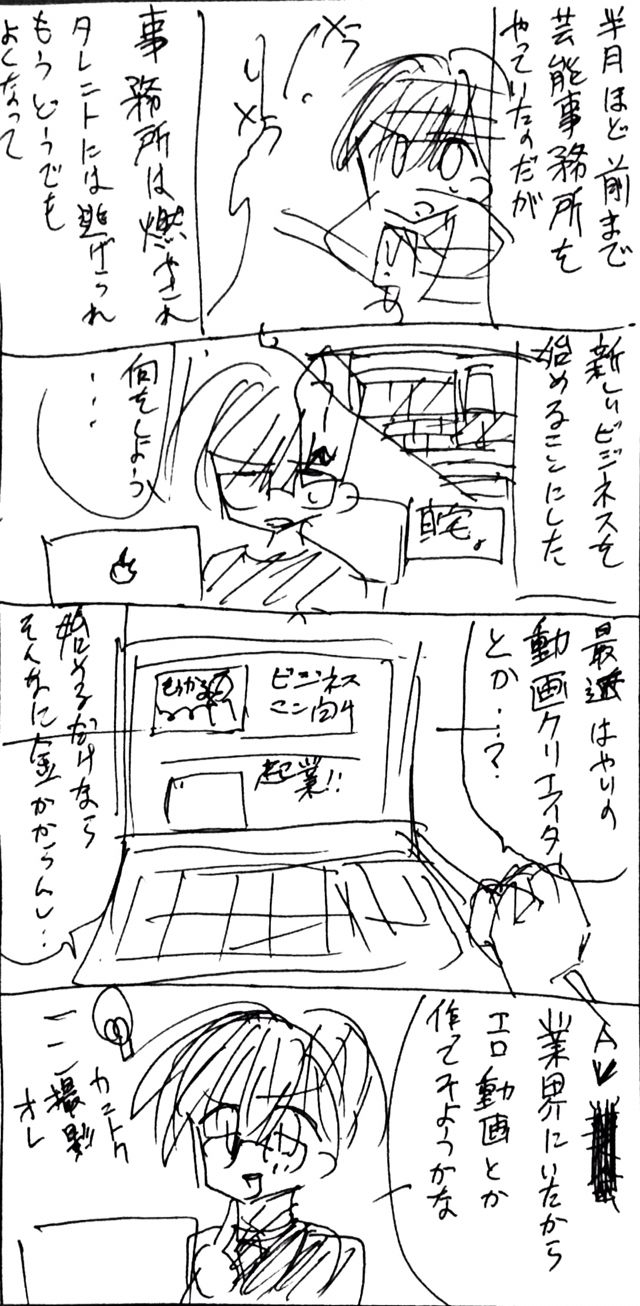 半月ほど前まで
芸能事務所を
やっていたのだが
メラ
メラ
事務所は燃やされ
タレントには逃げられ
もうどうでも
よくなって
新しいビジネスを
始めることにした
自宅。
何をしよう
・・・
最近はやりの
動画クリエイター
とか…？
ビジネス
マン向け
もうかる
起業!!
始めるだけなら
そんなに金かからんし…
業界にいたから
エロ動画とか
作てみようかな
カントク
撮影
オレ